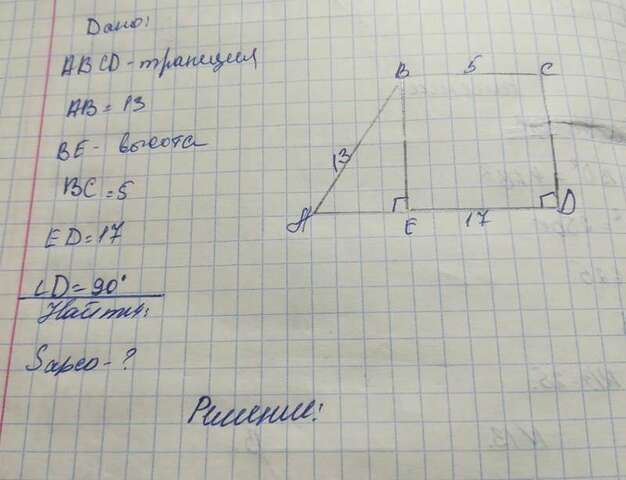 Дано:
ABCD - трапеция
AB = 13
BE - высота
BC = 5
ED = 17
∠D = 90°
Найти:
Sавсо - ?
Решение:
B 5 C
13
A E 17 D